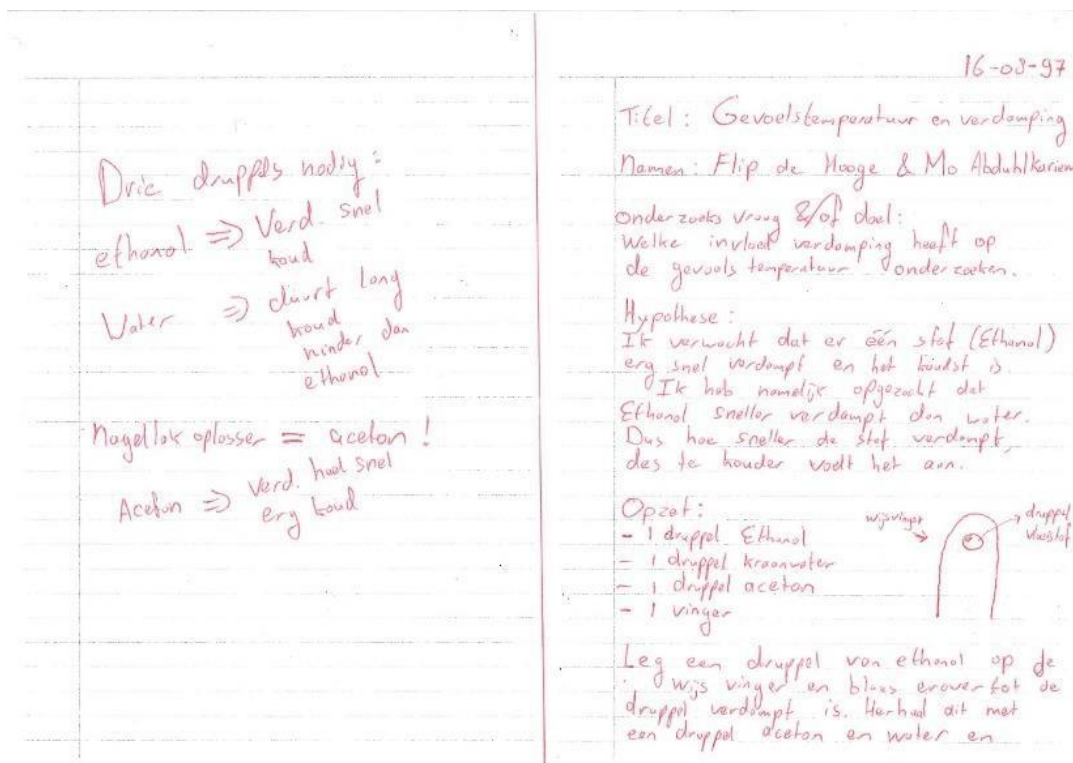 Drie druppels nodig:
ethanol => Verd. snel
koud
Water => duurt lang
koud
minder dan
ethanol
Nagellak oplosser = aceton!
Aceton => Verd. heel snel
erg koud
16-03-97
Titel: Gevoelstemperatuur en verdamping
Namen: Flip de Hooge & Mo Abduhlkariem
onderzoeks vraag &/of doel:
Welke invloed verdamping heeft op
de gevoels temperatuur onderzoeken.
Hypothese:
Ik verwacht dat er één stof (Ethanol)
erg snel verdampt en het koudst is.
Ik heb namelijk opgezocht dat
Ethanol sneller verdampt dan water.
Dus hoe sneller de stof verdampt,
des te kouder voelt het aan.
Opzet:
- 1 druppel Ethanol
- 1 druppel kraanwater
- 1 druppel aceton
- 1 vinger
wijsvinger
druppel
vloeistof
Leg een druppel van ethanol op de
wijs vinger en blaas erover tot de
druppel verdampt is. Herhaal dit met
een druppel aceton en water en